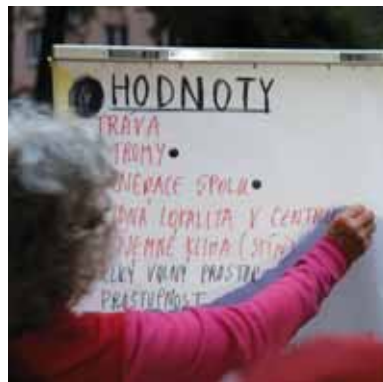 HODNOTY
TRÁVA
STROMY
GENERACE SPOLU
LOKALITA V CENTRU
KLIMA (STÍN)
VELKÝ VOLNÝ PROSTOR
PROSTUPNOST